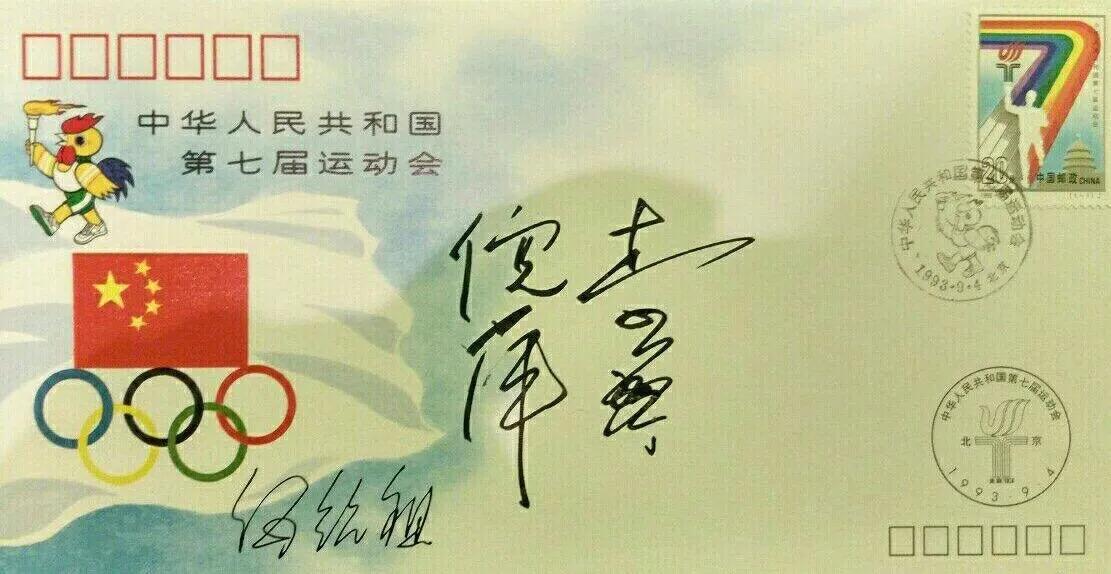 中华人民共和国
第七届运动会
20
中国邮政 CHINA
中华人民共和国第七届运动会
1993.9.4 北京
倪萍
伍绍祖
中华人民共和国第七届运动会
北 京
1993.9.4